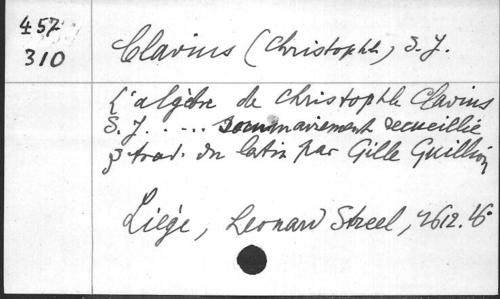 457
310
Clavius (Christophe) S.J.
L'algèbre de Christophe Clavius
S.J. ..... sommairement recueillie
& trad. du latin par Gille Guillion
Liège, Leonard Streel, 1612. 4°